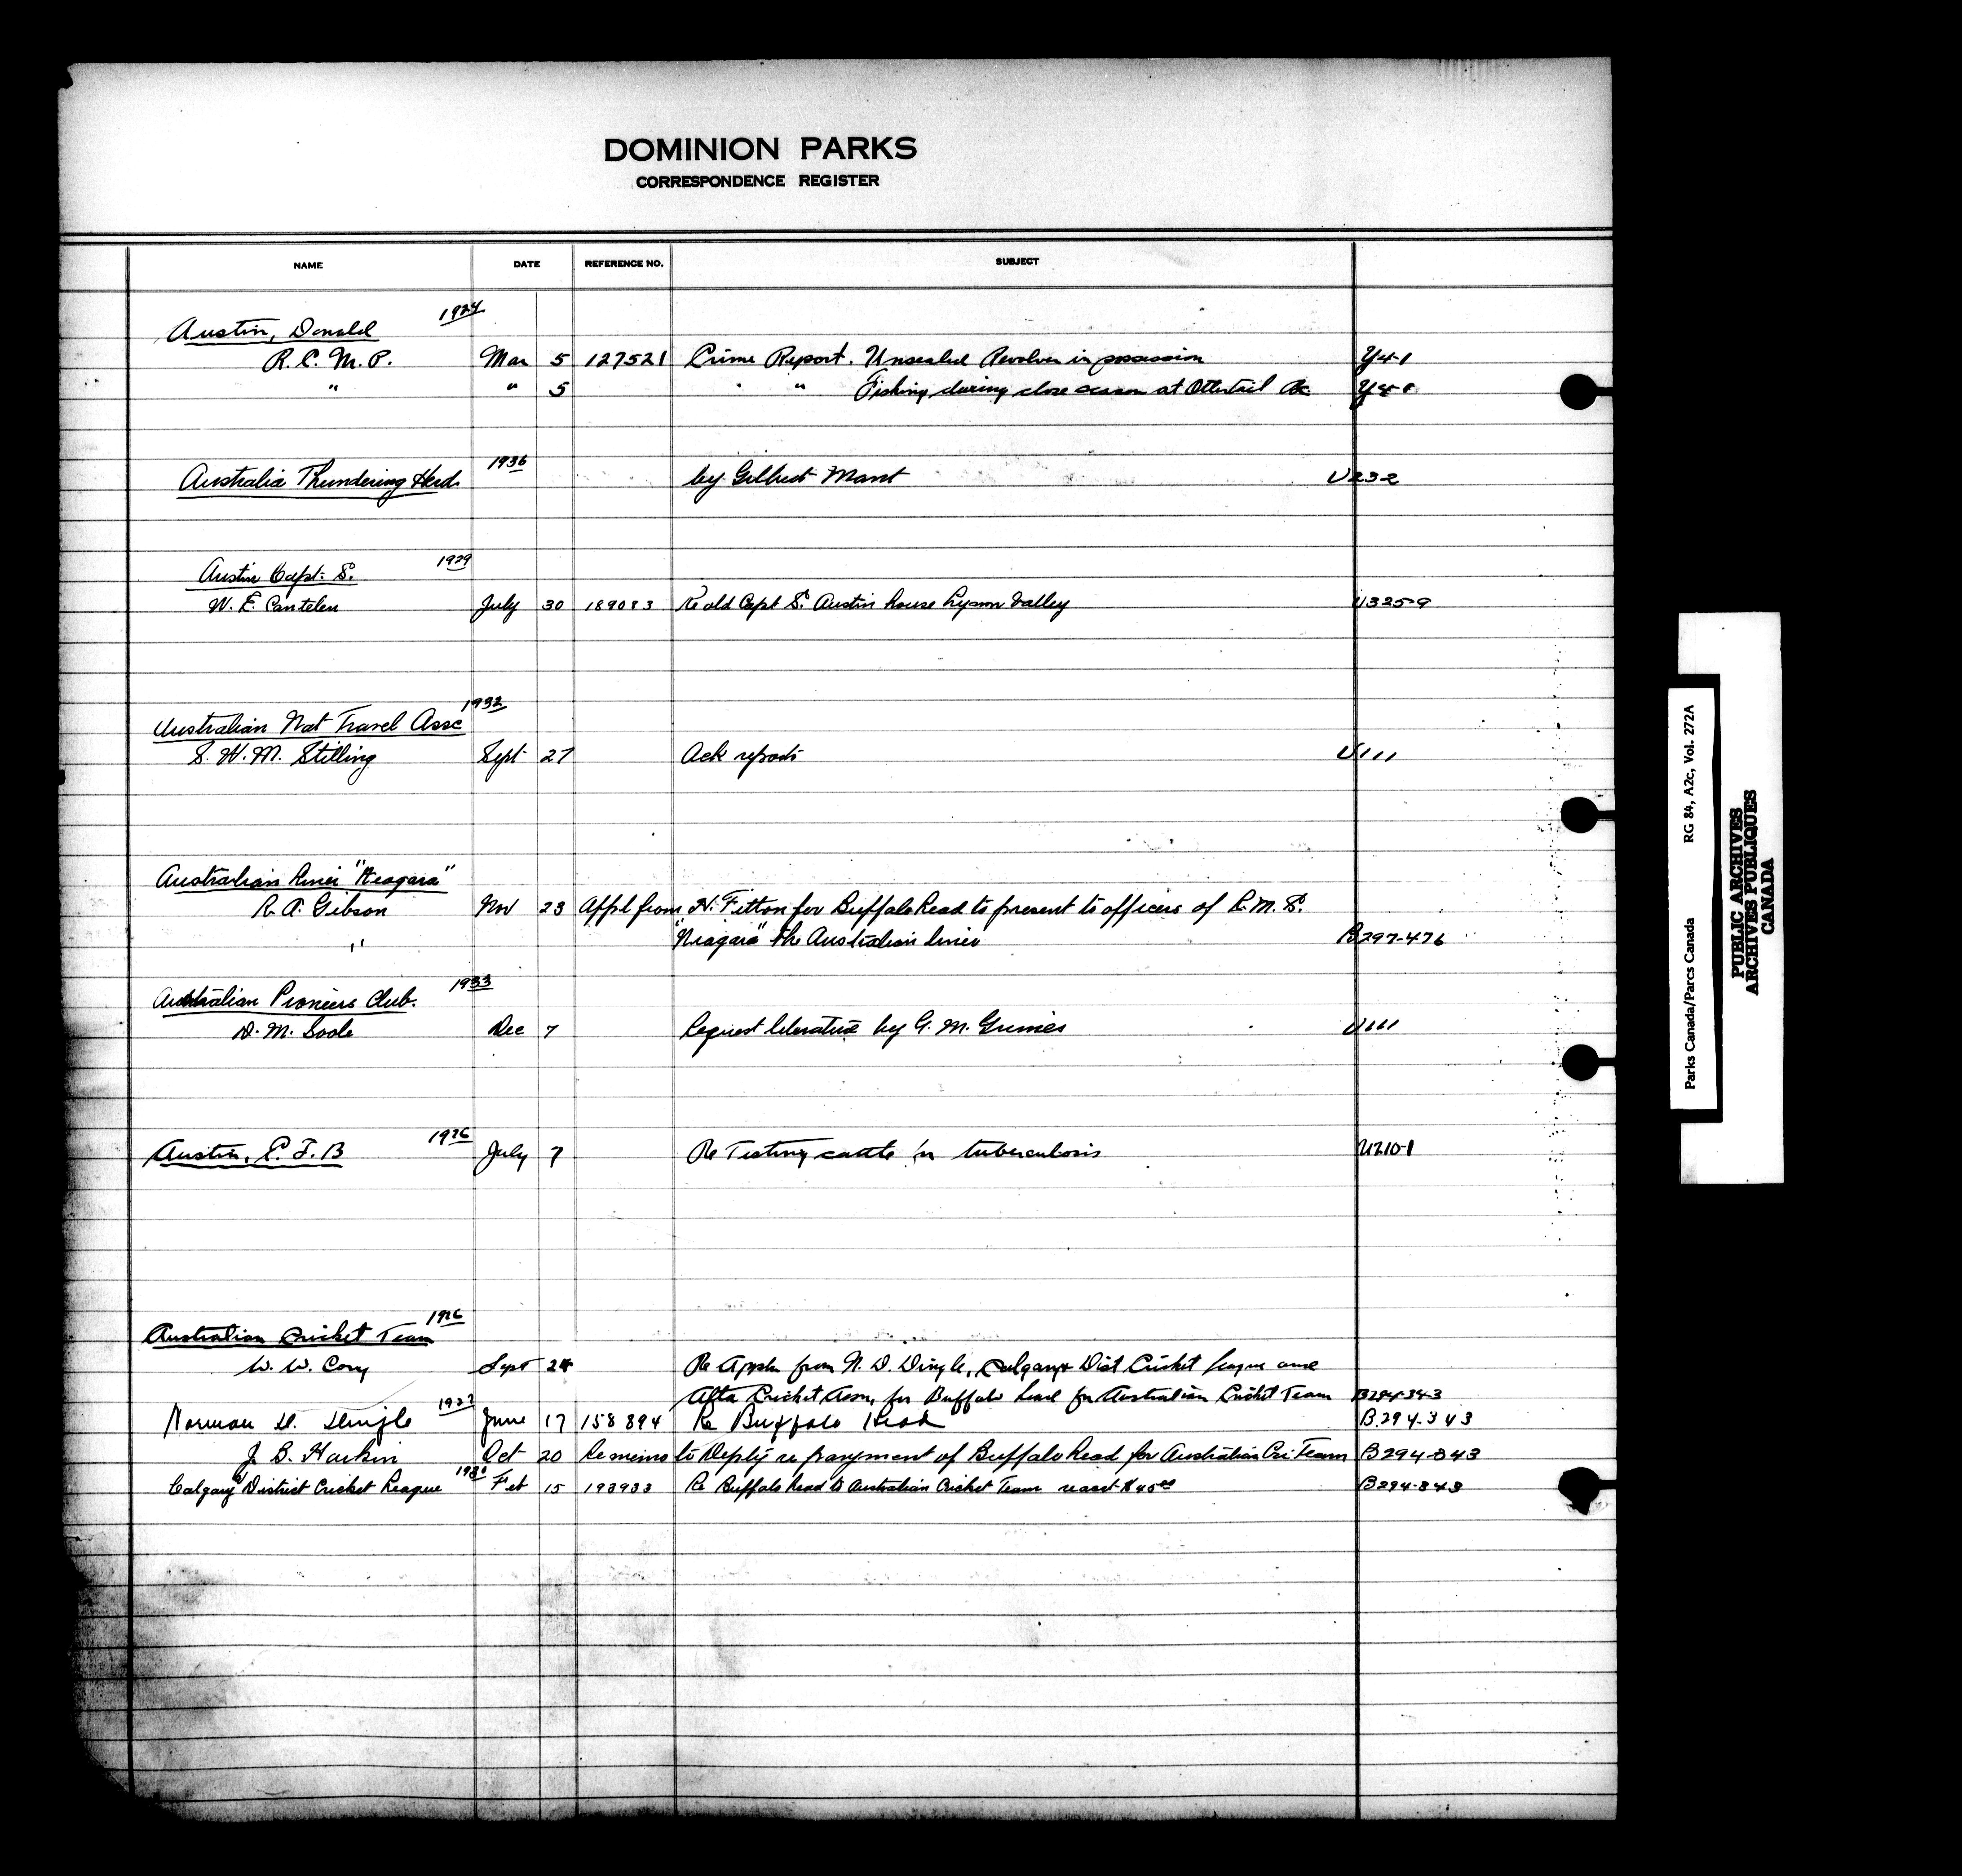 DOMINION PARKS
CORRESPONDENCE REGISTER
NAME DATE REFERENCE NO. SUBJECT
1924
Austin, Donald
R.C.M.P. Mar 5 127521 Crime Report. Unsealed Revolver in possession Y4-1
" " 5 " " Fishing during close season at Ottertail Y4-1
1936
Australia Thundering Herd by Gilbert Mant U232
1929
Austin Capt. S.
W. E. Cantelon July 30 189083 Re old Capt S. Austin house Valley U325-9
1932
Australian Nat Travel Assc
S. H. M. Stilling Sept 27 Ack reports U111
Australian Liner "Niagara"
R. A. Gibson Nov 23 Appl from H. Fitton for Buffalo Head to present to officers of R.M.S.
" "Niagara" the Australian liner B297-476
1933
Australian Pioneers Club.
D. M. Soole Dec 7 Request literature by G. M. Grimes U111
1926
Austin, E. J. B July 7 Re Testing cattle for tuberculosis U210-1
1926
Australian Cricket Team
W. W. Cory Sept 24 Re Appln from N. D. Dingle, Calgary & Dist Cricket League and
Alta Cricket Assn, for Buffalo head for Australian Cricket Team B294-343
1927
Norman D. Dingle June 17 158894 Re Buffalo Head B.294-343
J. B. Harkin Oct 20 Re memo to Deputy re payment of Buffalo head for Australian Cri Team B294-343
Calgary District Cricket League Feb 15 193933 Re Buffalo head to Australian Cricket Team B294-343
Parks Canada/Parcs Canada RG 84, A2c, Vol. 272A
PUBLIC ARCHIVES
ARCHIVES PUBLIQUES
CANADA